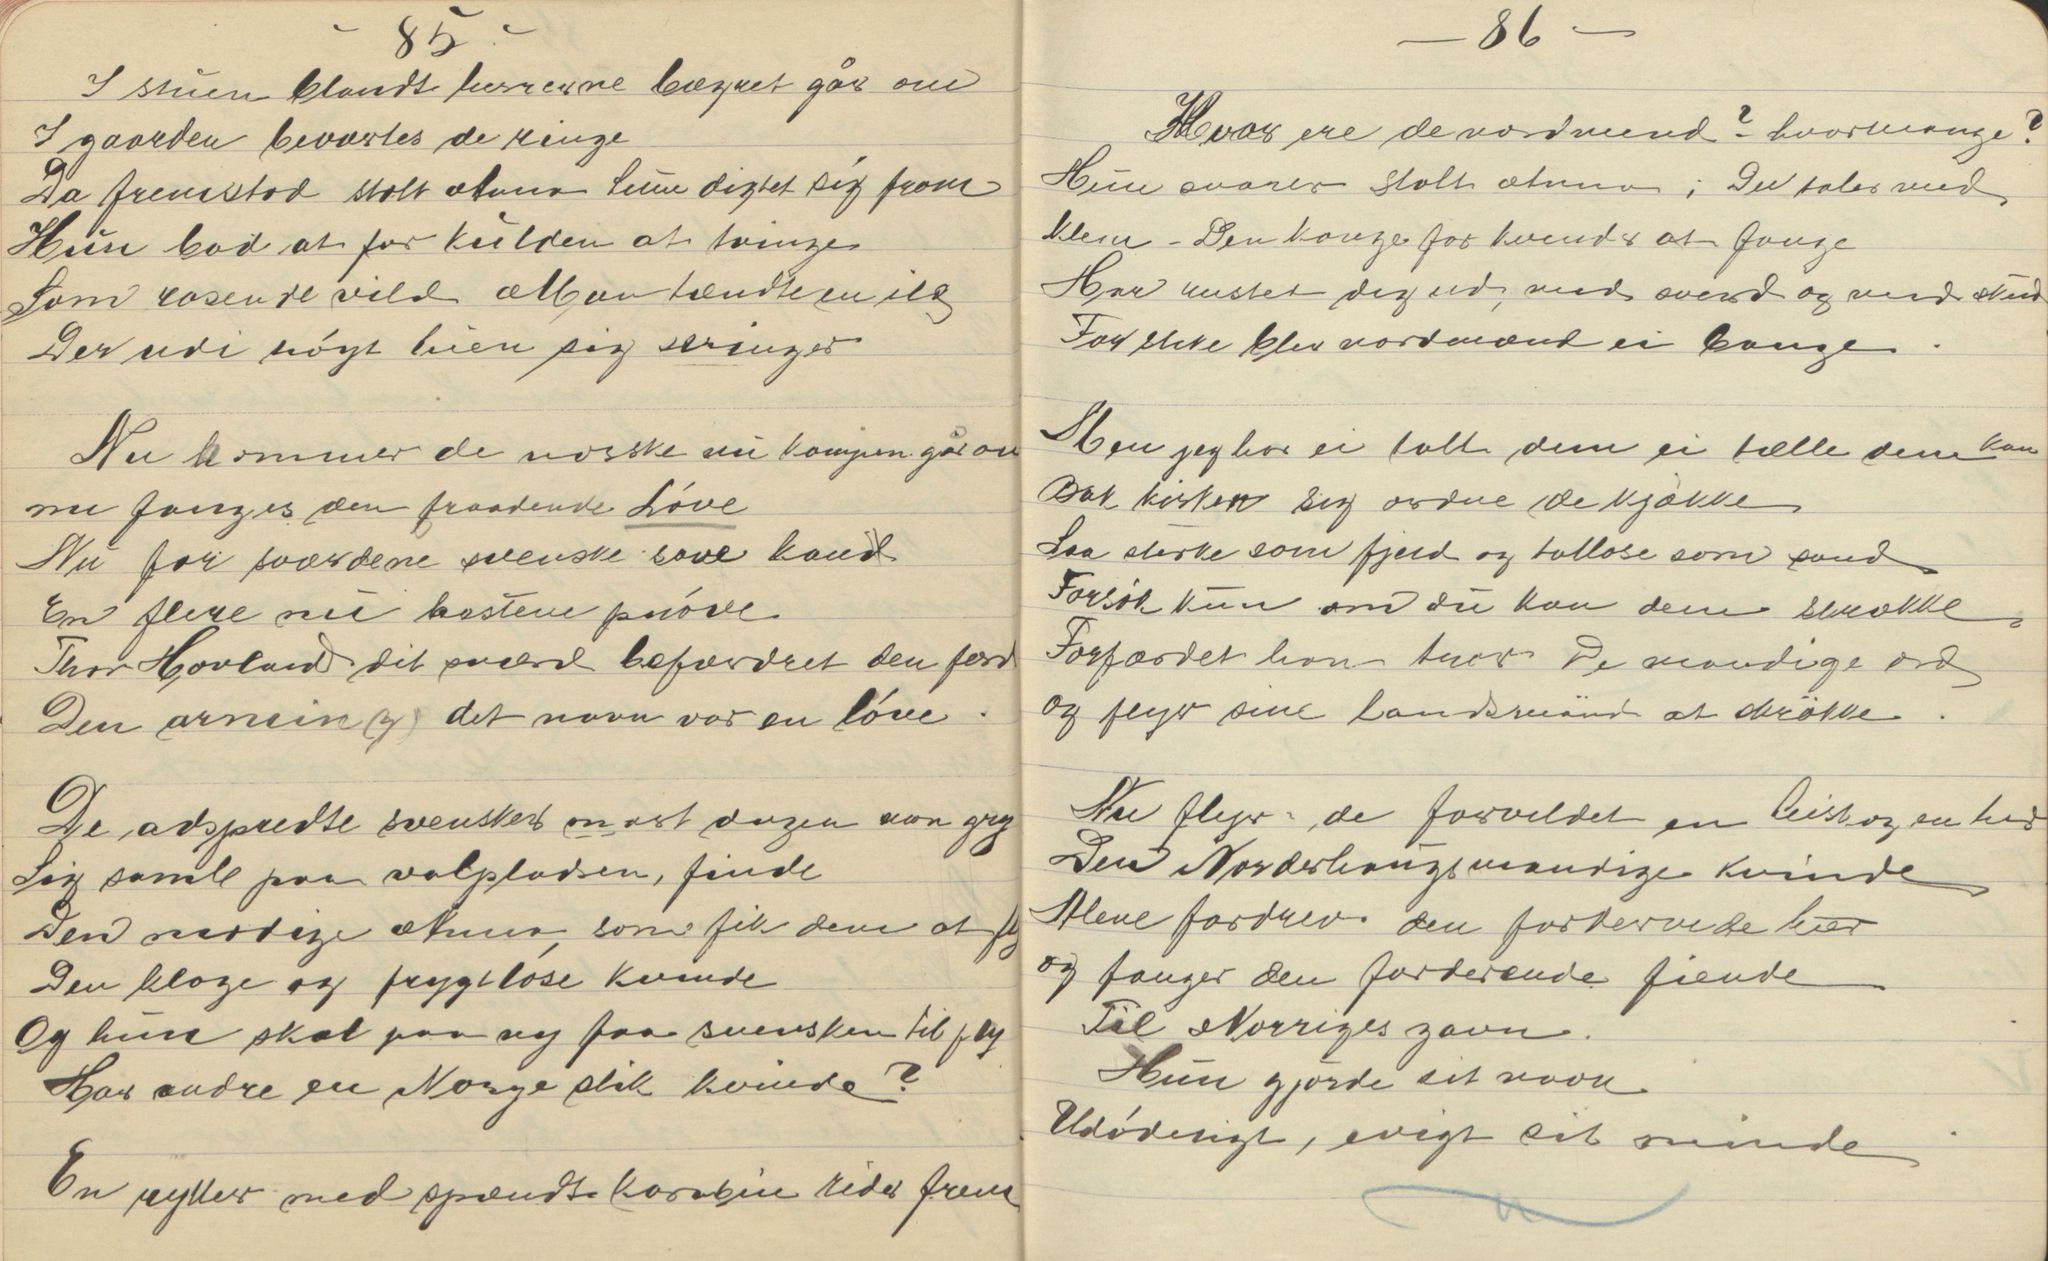 - 85 -
I stuen blandt herrerne bægret går om
I gaarden beværtes de ringe
Da fremstod stolt Anna hun digtet sig from
Hun bad at for kulden at tvinge
Som rasende vild Man tændte en ild
Der udi højt luen sig svinger
Nu kommer de norske nu kampen går an
nu fanges den fraadende Löve
Nu for sværdene svenske sove kand
En flere nu hastene pröve
Thor Hovland dit sværd befordret den færd
Den arming det navn var en löve.
De adspredte svensker mort dagen var gry
Sig samle paa valpladsen, finde
Den modige Anna som fik dem at fly
Den kloge og frygtlöse kvinde
Og hun skal paa ny faa svensken til fly
Har andre en Norge slik kvinde?
En rytter med spændt karabin rider frem
- 86 -
Hvor ere de nordmend? - hvormange?
Hun svarer stolt Anna; Du taler med
klem - Den konge for kvender at fange
Har rustet dig ud, med sverd og med skud
For slike blev nordmænd ei bange.
Men jeg har ei talt dem ei tælle dem kan
Bak kirken sig ordne de kjække
Saa sterke som fjeld og tallöse som sand
Forsök kun om du kan dem skrække
Forfærdet han tror De mandige ord
og flyr sine landsmänd at skrökke.
Nu flyr de forvildet en hist og en her
Den Norderhougs mandige kvinde
Alene fordrev den fordervede hær
og fanger den forderende fiende
Til Norriges gavn.
Hun gjorde sit navn
Udödeligt, evigt sit minde